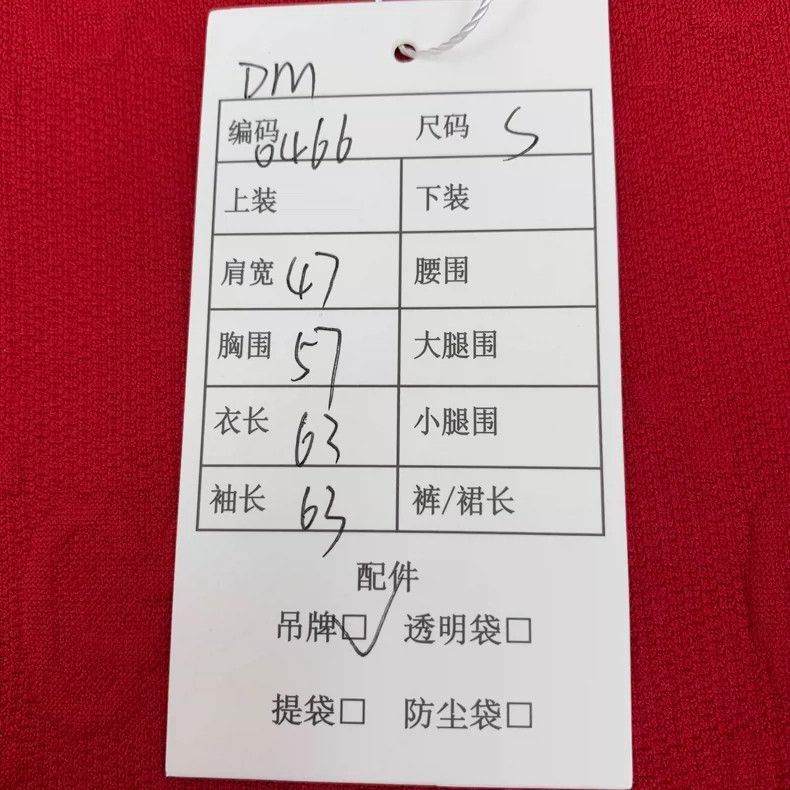 DM
编码 0466 尺码 S
上装 下装
肩宽 47 腰围
胸围 57 大腿围
衣长 63 小腿围
袖长 63 裤/裙长
配件
吊牌☑ 透明袋□
提袋□ 防尘袋□